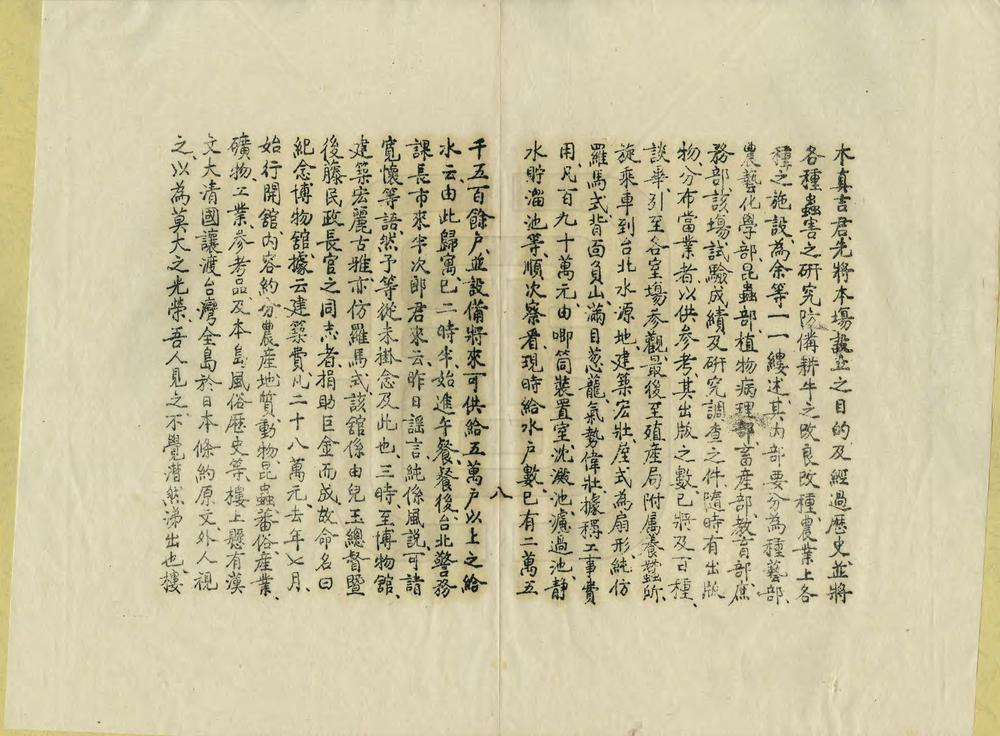 木真言君先將本場設立之目的及經過歷史、並將
各種蟲害之研究、防儔耕牛之改良、改種農業上各
種之施設、為余等一一縷述、其內部要分為種藝部、
農藝化學部、昆蟲部、植物病理部、畜產部、教育部、庶
務部、該場試驗成績及研究調查之件、隨時有出版
物、分布當業者以供參考、其出版之數、已將及百種、
談畢、引至各室場參觀、最後至殖產局附属養蠶所、
旋乘車到台北水源地、建築宏壯、屋式為扇形、純仿
羅馬式、背面負山、滿目葱蘢、氣勢偉壯、據穪工事費
用、凡百九十萬元、由唧筒裝置室、沈澱池、濾過池、靜
水貯溜池等、順次察看、現時給水户數、已有二萬五
八
千五百餘户、並設備將來可供給五萬户以上之給
水云、由此歸寓、已二時半、始進午餐、餐後、台北警務
課長市來半次郎君來云、昨日謠言純係風說、可請
寬懷等語、然予等從未掛念及此也、三時、至博物館、
建築宏麗古雅、亦仿羅馬式、該館係由兒玉總督暨
後藤民政長官之同志者捐助巨金而成、故命名曰
紀念博物館、據云建築費凡二十八萬元、去年七月、
始行開館、內容約分農產、地質、動物、昆蟲、蕃俗、產業、
礦物、工業、參考品及本島風俗歷史等、樓上懸有漢
文大清國讓渡台灣全島於日本條約原文、外人視
之、以為莫大之光榮、吾人見之、不覺潸然涕出也、樓